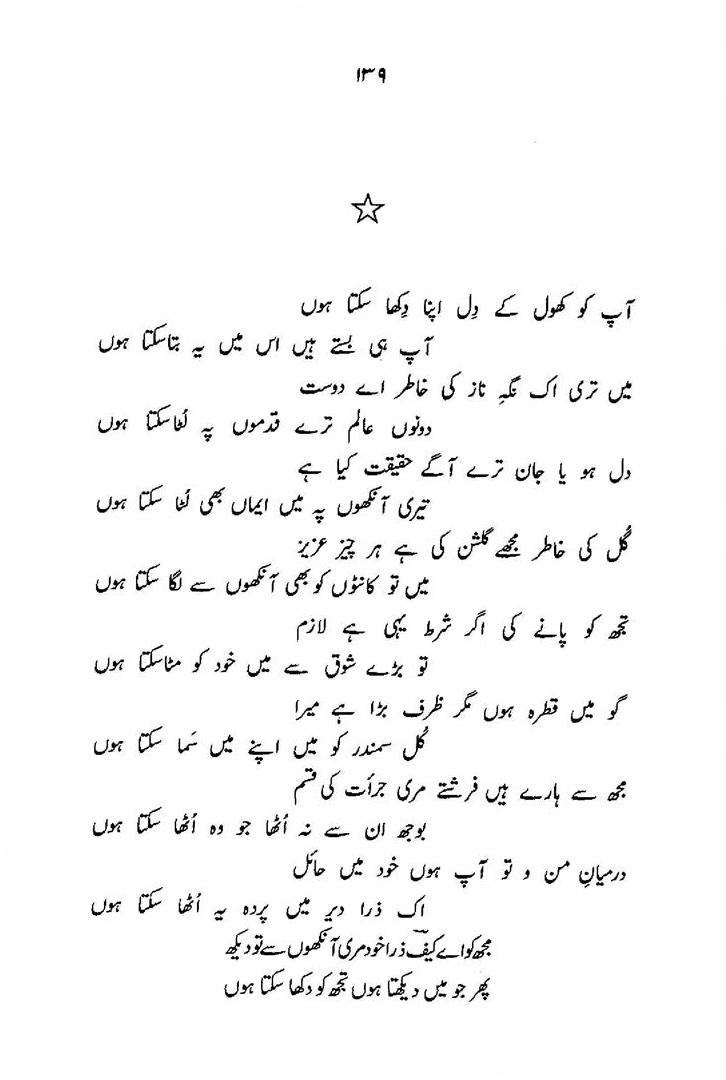 ۱۳۹
آپ کو کھول کے دِل اپنا دِکھا سکتا ہوں
آپ ہی بستے ہیں اس میں یہ بتا سکتا ہوں
میں تری اک نگہِ ناز کی خاطر اے دوست
دونوں عالم ترے قدموں پہ لُٹا سکتا ہوں
دل ہو یا جان ترے آگے حقیقت کیا ہے
تیری آنکھوں پہ میں ایماں بھی لُٹا سکتا ہوں
گُل کی خاطر مجھے گلشن کی ہے ہر چیز عزیز
میں تو کانٹوں کو بھی آنکھوں سے لگا سکتا ہوں
تجھ کو پانے کی اگر شرط یہی ہے لازم
تو بڑے شوق سے میں خود کو مٹا سکتا ہوں
گو میں قطرہ ہوں مگر ظرف بڑا ہے میرا
کُل سمندر کو میں اپنے میں سَما سکتا ہوں
مجھ سے ہارے ہیں فرشتے مری جرأت کی قسم
بوجھ ان سے نہ اُٹھا جو وہ اُٹھا سکتا ہوں
درمیانِ من و تو آپ ہوں خود میں حائل
اک ذرا دیر میں پردہ یہ اُٹھا سکتا ہوں
مجھ کو اے کیفؔ ذرا خود مری آنکھوں سے تو دیکھ
پھر جو میں دیکھتا ہوں تجھ کو دکھا سکتا ہوں